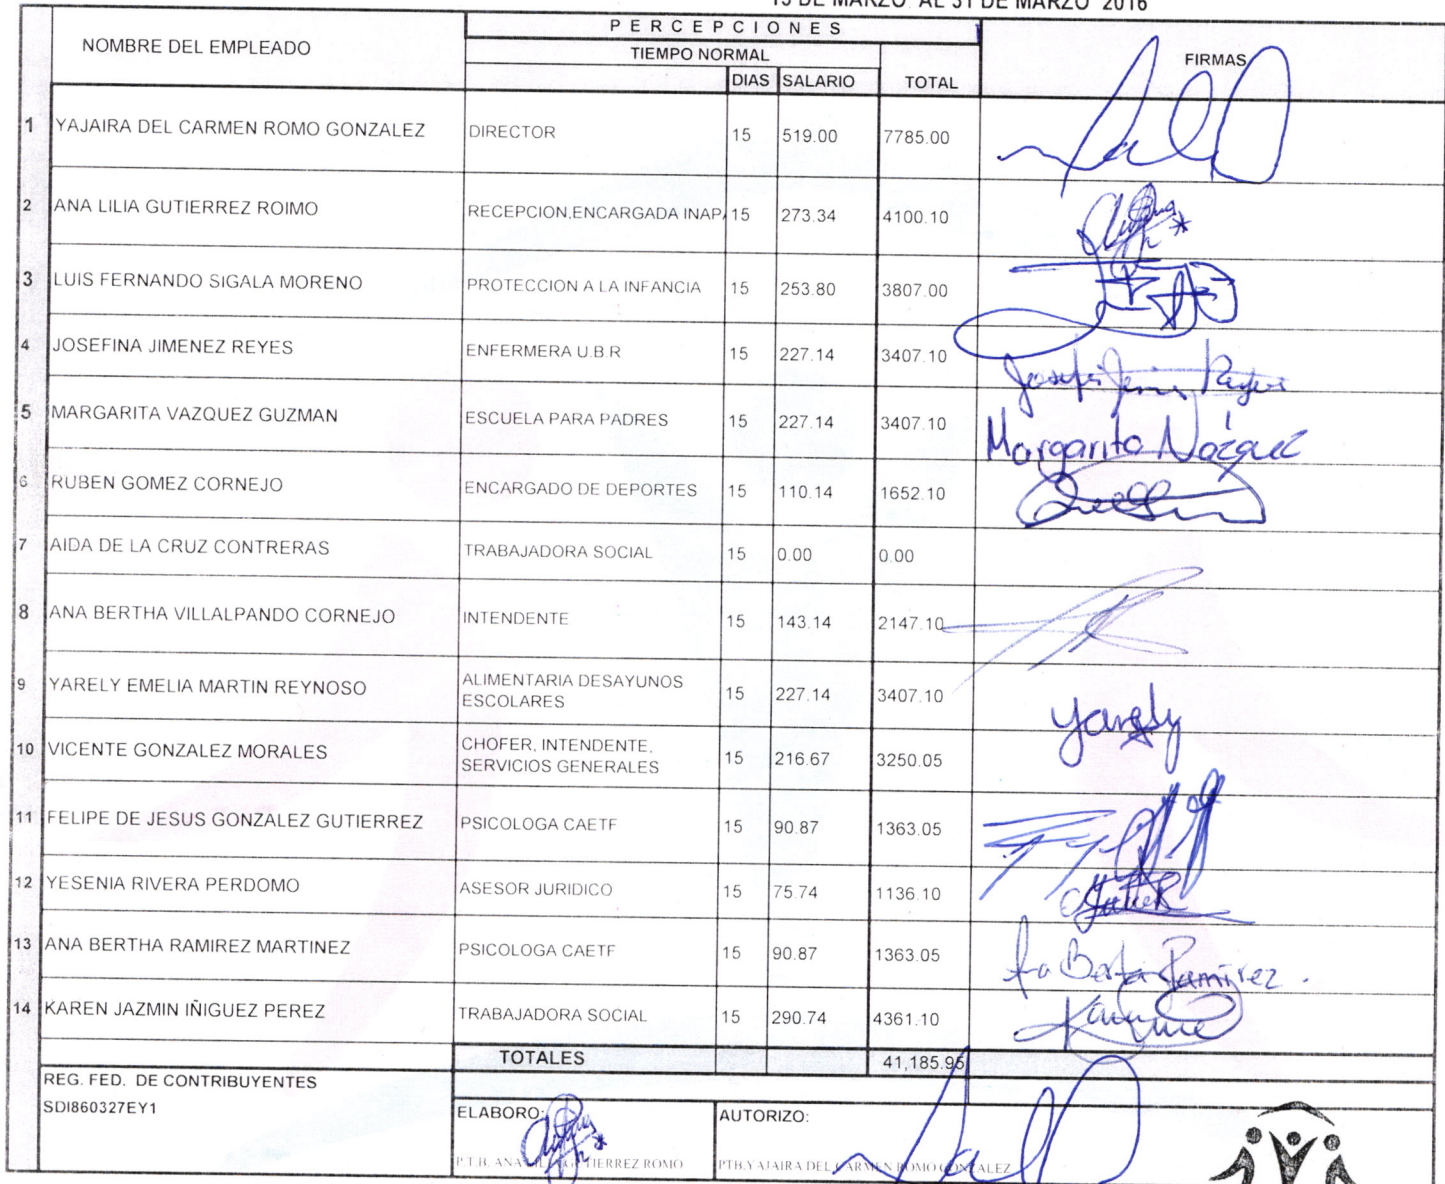 15 DE MARZO AL 31 DE MARZO 2016
PERCEPCIONES
NOMBRE DEL EMPLEADO TIEMPO NORMAL FIRMAS
DIAS SALARIO TOTAL
1 YAJAIRA DEL CARMEN ROMO GONZALEZ DIRECTOR 15 519.00 7785.00
2 ANA LILIA GUTIERREZ ROIMO RECEPCION,ENCARGADA INAPA 15 273.34 4100.10
3 LUIS FERNANDO SIGALA MORENO PROTECCION A LA INFANCIA 15 253.80 3807.00
4 JOSEFINA JIMENEZ REYES ENFERMERA U.B.R 15 227.14 3407.10
5 MARGARITA VAZQUEZ GUZMAN ESCUELA PARA PADRES 15 227.14 3407.10 Margarita Vázquez
6 RUBEN GOMEZ CORNEJO ENCARGADO DE DEPORTES 15 110.14 1652.10
7 AIDA DE LA CRUZ CONTRERAS TRABAJADORA SOCIAL 15 0.00 0.00
8 ANA BERTHA VILLALPANDO CORNEJO INTENDENTE 15 143.14 2147.10
9 YARELY EMELIA MARTIN REYNOSO ALIMENTARIA DESAYUNOS ESCOLARES 15 227.14 3407.10 Yarely
10 VICENTE GONZALEZ MORALES CHOFER, INTENDENTE, SERVICIOS GENERALES 15 216.67 3250.05
11 FELIPE DE JESUS GONZALEZ GUTIERREZ PSICOLOGA CAETF 15 90.87 1363.05
12 YESENIA RIVERA PERDOMO ASESOR JURIDICO 15 75.74 1136.10
13 ANA BERTHA RAMIREZ MARTINEZ PSICOLOGA CAETF 15 90.87 1363.05 Ramirez
14 KAREN JAZMIN IÑIGUEZ PEREZ TRABAJADORA SOCIAL 15 290.74 4361.10
TOTALES 41,185.95
REG. FED. DE CONTRIBUYENTES
SDI860327EY1
ELABORO: AUTORIZO:
P.T.B. ANA LILIA GUTIERREZ ROMO PTB.YAJAIRA DEL CARMEN ROMO GONZALEZ